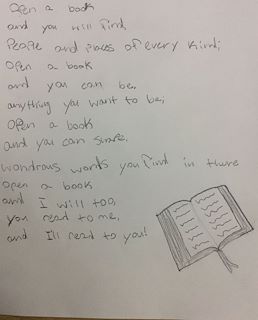 Open a book
and you will find,
People and places of every kind;
Open a book
and you can be,
anything you want to be;
Open a book
and you can share,
wondrous words you find in there
Open a book
and I will too,
you read to me,
and I'll read to you!